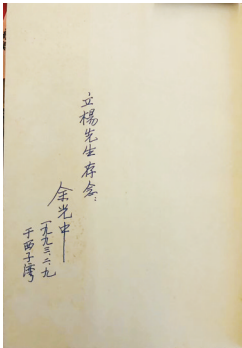 立楊先生存念:
余光中
一九九三.二.九
于西子灣